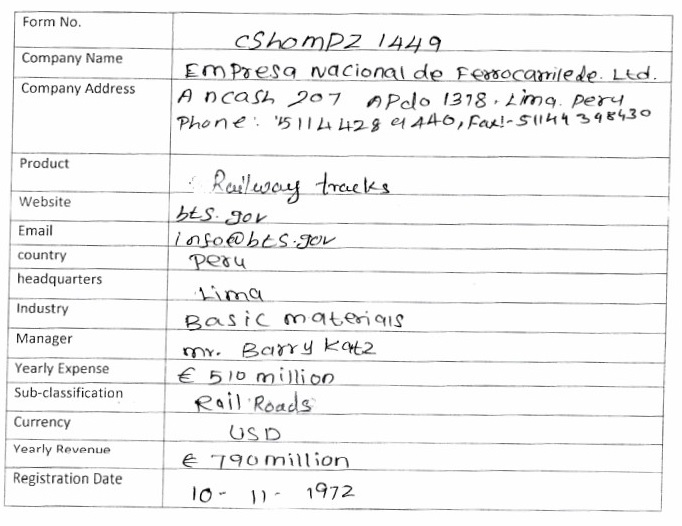 Form No.
cShomPZ 1449
Company Name
Empresa Nacional de Ferrocarrilede. Ltd.
Company Address
Ancash 207 APdo 1378. Lima. Peru
Phone: 5114428 9440, Fax:- 51144 398430
Product
Railway tracks
Website
bts.gov
Email
info@bts.gov
country
Peru
headquarters
Lima
Industry
Basic materials
Manager
mr. Barry Katz
Yearly Expense
€ 510 million
Sub-classification
Rail Roads
Currency
USD
Yearly Revenue
€ 790 million
Registration Date
10- 11- 1972